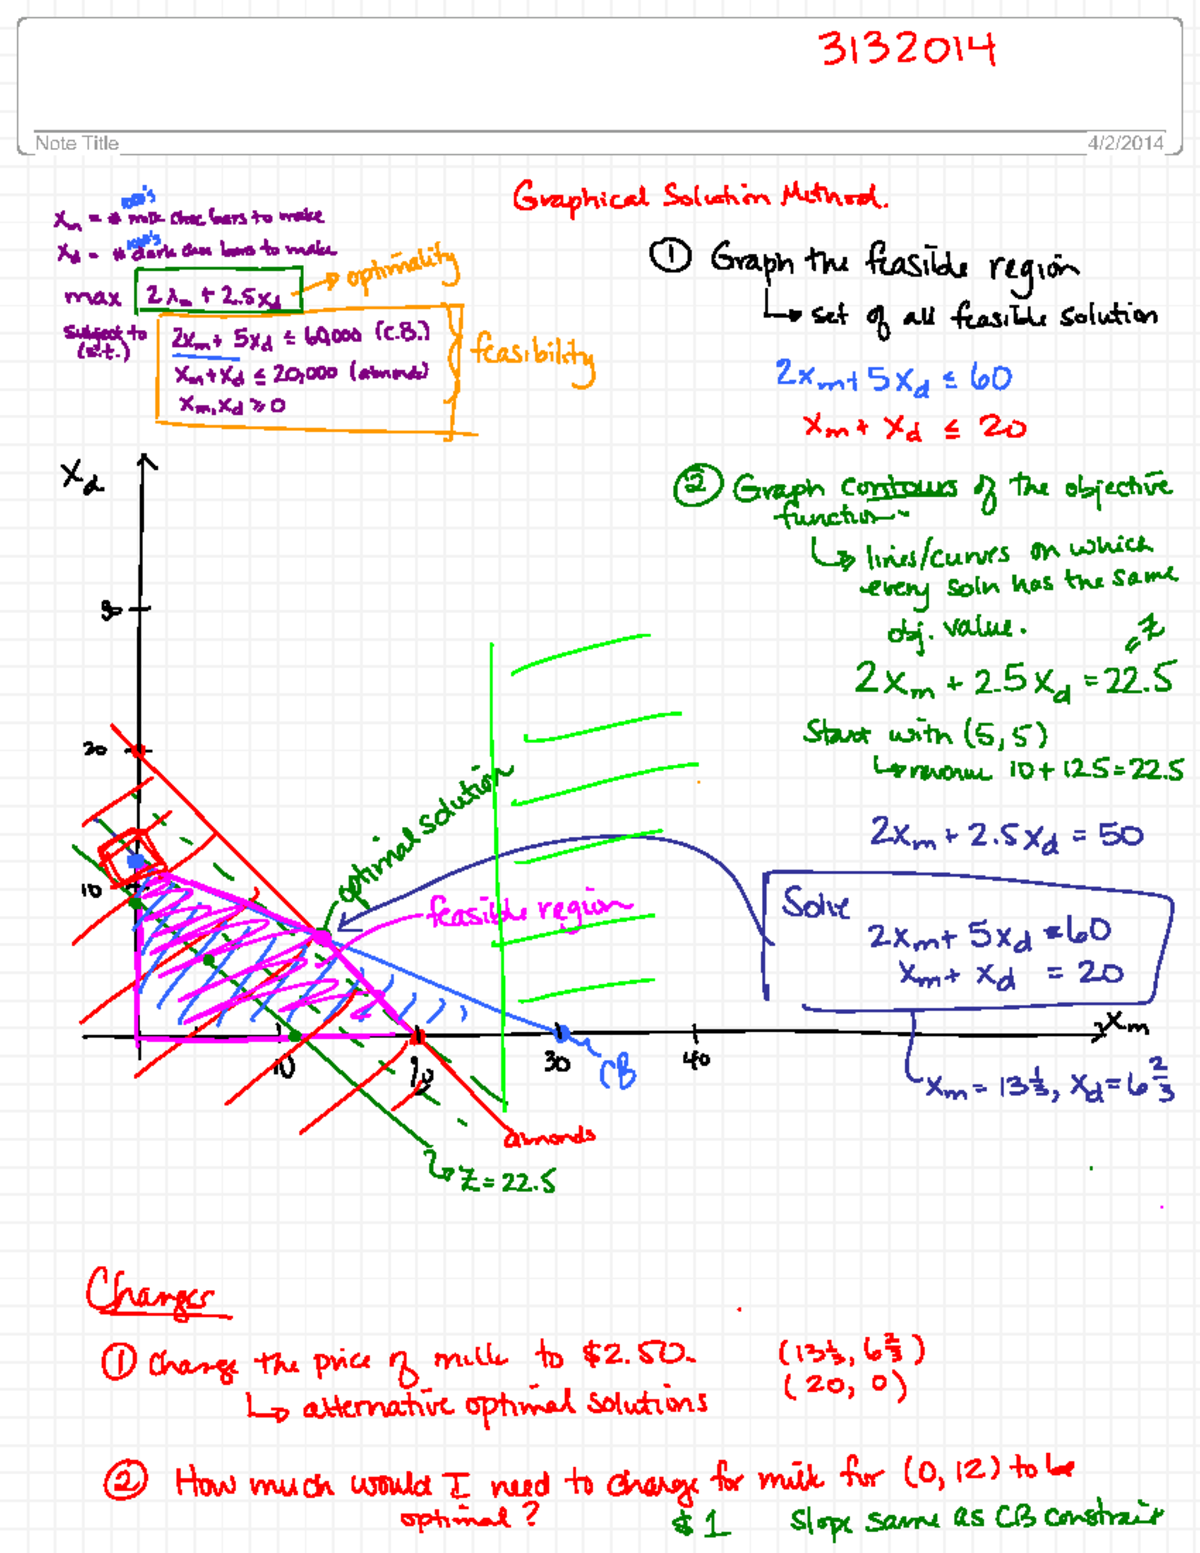 3132014
Note Title
4/2/2014
1000's
Xm = # milk choc bars to make
1000's
Xd = # dark choc bars to make
max 2Xm + 2.5Xd → optimality
subject to (s.t.)
2Xm + 5Xd ≤ 60,000 (C.B.)
Xm + Xd ≤ 20,000 (almonds)
Xm, Xd ≥ 0
feasibility
Graphical Solution Method.
① Graph the feasible region
↳ set of all feasible solution
2Xm + 5Xd ≤ 60
Xm + Xd ≤ 20
② Graph contours of the objective
function
↳ lines/curves on which
every soln has the same
obj. value.
= Z
2Xm + 2.5Xd = 22.5
Start with (5,5)
↳ revenue 10 + 12.5 = 22.5
2Xm + 2.5Xd = 50
Solve
2Xm + 5Xd = 60
Xm + Xd = 20
Xm = 13 1/3, Xd = 6 2/3
Xd
30
20
10
optimal solution
feasible region
10
20
30
40
Xm
CB
almonds
Z = 22.5
Changes
① Change the price of milk to $2.50.
(13 1/3, 6 2/3)
↳ alternative optimal solutions
(20, 0)
② How much would I need to charge for milk for (0, 12) to be
optimal?
$1
Slope same as CB constraint